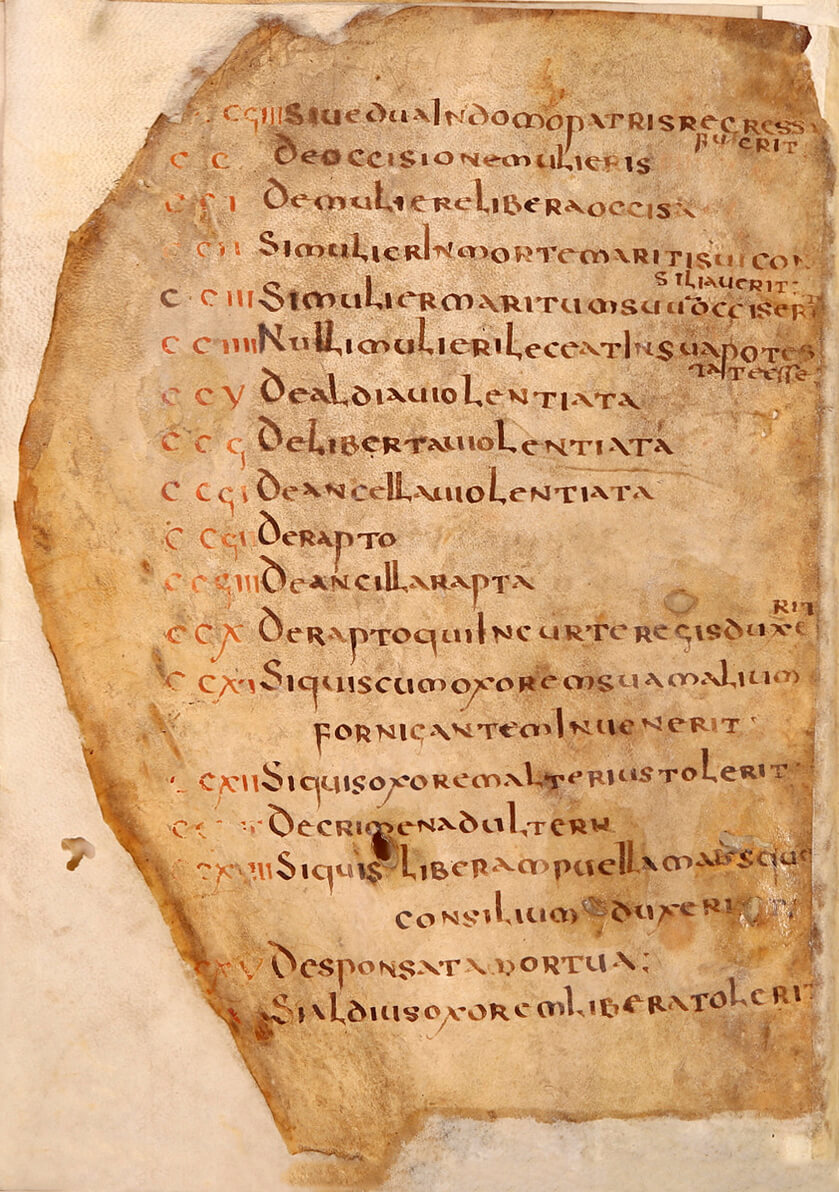 CCɕIII Siuedua In domo patris regress
fuerit
CC De occisione mulieris
CCI De muliere libera occisa
CCII Si mulier In morte mariti sui con
siliauerit:
CCIII Si mulier maritum suū occiser
CCIIII Nulli mulieri leceat In sua potes
tate esse
CCV De aldia uiolentiata
CCϛ De liberta uiolentiata
CCϛI De ancella uiolentiata
CCϛII De rapto
CCϛIII De ancilla rapta
CCX De rapto qui In curte regis duxe
rit
CCXI Si quis cum oxorem suam alium
fornicantem Inuenerit
CCXII Si quis oxorem alterius tolerit
De crimen adulterii
Si quis liberam puellam absque
consilium duxerit
CXV De sponsata mortua;
Si aldius oxorem libera tolerit